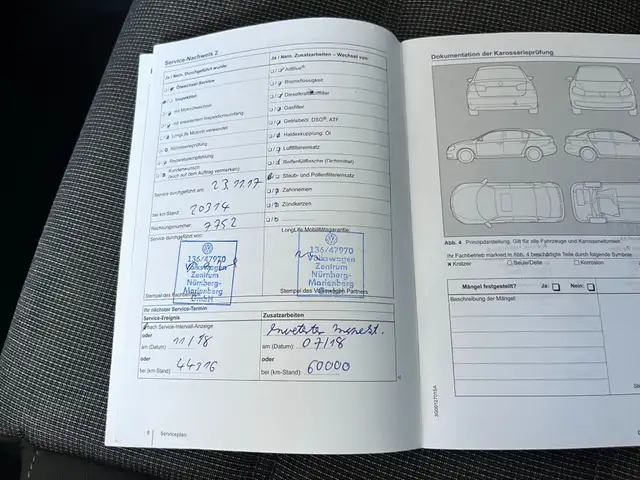 Service-Nachweis 2
Ja / Nein. Durchgeführt wurde:
Ölwechsel-Service
Inspektion
mit Motorölwechsel
mit erweitertem Inspektionsumfang
LongLife Motoröl verwendet
Karosserieprüfung
Reparaturempfehlung
Kundenwunsch
(auch auf dem Auftrag vermerken)
Service durchgeführt am: 23.11.17
bei km-Stand: 20314
Rechnungsnummer: 7752
Service durchgeführt von:
136/47970
Volkswagen
Zentrum
Nürnberg-
Marienberg
GmbH
Stempel des Fachbetriebs
Ja / Nein. Zusatzarbeiten – Wechsel von:
AdBlue®
Bremsflüssigkeit
Dieselkraftstofffilter
Gasfilter
Getriebeöl: DSG®, ATF
Haldexkupplung: Öl
Luftfiltereinsatz
Reifenfüllflasche (Dichtmittel)
Staub- und Pollenfiltereinsatz
Zahnriemen
Zündkerzen
LongLife Mobilitätsgarantie:
136/47970
Volkswagen
Zentrum
Nürnberg-
Marienberg
GmbH
Stempel des Volkswagen Partners
Ihr nächster Service-Termin
Service-Ereignis
nach Service-Intervall-Anzeige
oder
am (Datum): 11/18
oder
bei (km-Stand): 44316
Zusatzarbeiten
am (Datum): 07/18
oder
bei (km-Stand): 60000
8
Serviceplan
Dokumentation der Karosserieprüfung
Abb. 4 Prinzipdarstellung. Gilt für alle Fahrzeuge und Karosserieformen
Ihr Fachbetrieb markiert in Abb. 4 beschädigte Teile durch folgende Symbole
× Kratzer
○ Beule/Delle
□ Korrosion
Mängel festgestellt? Ja: Nein:
Beschreibung der Mängel: